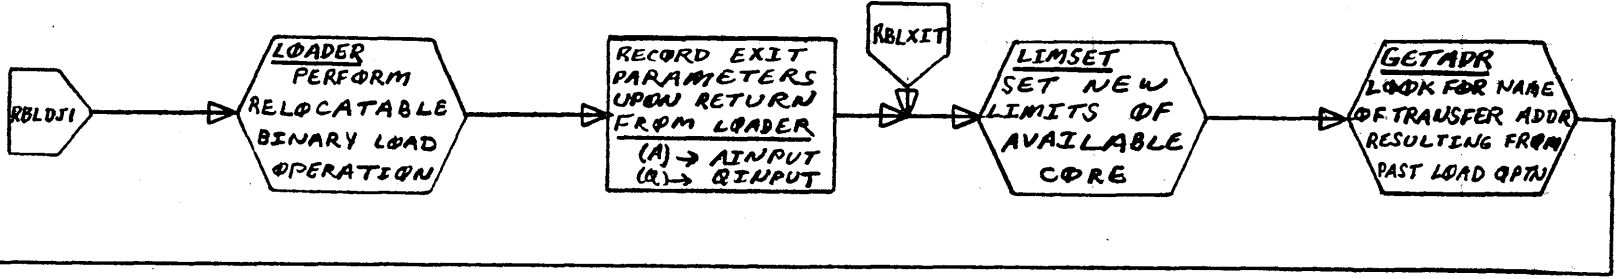 RBLDJ1
LOADER
PERFORM
RELOCATABLE
BINARY LOAD
OPERATION
RECORD EXIT
PARAMETERS
UPON RETURN
FROM LOADER
(A)→ AINPUT
(Q)→ QINPUT
RBLXIT
LIMSET
SET NEW
LIMITS OF
AVAILABLE
CORE
GETADR
LOOK FOR NAME
OF TRANSFER ADDR
RESULTING FROM
PAST LOAD OPTN